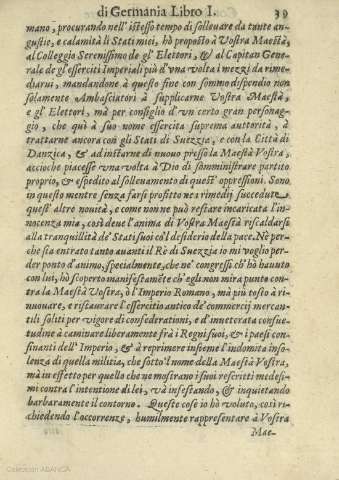 di Germania Libro I. 39
mano, procurando nell'istesso tempo di solleuare da tante an-
gustie, e calamità li Stati miei, hò proposto à Vostra Maestà,
al Colleggio Serenissimo de gl'Elettori, & al Capitan Gene-
rale de gl'esserciti Imperiali più d'vna volta i mezzi da rime-
diarui, mandandone à questo fine con sommo dispendio non
solamente Ambasciatori à supplicarne Vostra Maestà,
e gl'Elettori, mà per consiglio d'vn certo gran personag-
gio, che quà à suo nome essercita suprema auttorità, à
trattarne ancora con gli Stati di Suezzia, e con la Città di
Danzica, & ad instarne di nuouo presso la Maestà Vostra,
accioche piacesse vna volta à Dio di somministrare partito
proprio, & espedito al solleuamento di quest'oppressioni. Sono,
in questo mentre senza farsi profitto ne'rimedij succedute
quest'altre nouità, e come non ne può restare incaricata l'in-
nocenza mia, così deue l'anima di Vostra Maestà riscaldarsi
alla tranquillità de'Stati suoi cō'l desiderio della pace. Nè per-
che sia entrato tanto auanti il Rè di Suezzia io mi voglio per-
der ponto d'animo, specialmente, che ne'congressi ch'hò hauuto
con lui, hò scoperto manifestamēte ch'egli non mira punto con-
tra la Maestà Vostra, ò l'Imperio Romano, mà più tosto à ri-
nuouare, e ristaurare l'essercitio antico de'commercij mercan-
tili soliti per vigore di confederationi, e d'inueterata consue-
tudine à caminare liberamente frà i Regni suoi, & i paesi con-
finanti dell'Imperio, & à reprimere insieme l'indomita inso-
lenza di quella militia, che sotto'l nome della Maestà Vostra,
mà in effetto per quello che ne mostrano i suoi rescritti medesi-
mi contra l'intentione di lei, và infestando, & inquietando
barbaramente il contorno. Queste cose io hò voluto, così ri-
chiedendo l'occorrenze, humilmente rappresentare à Vostra
Mae-
Colección ABANCA